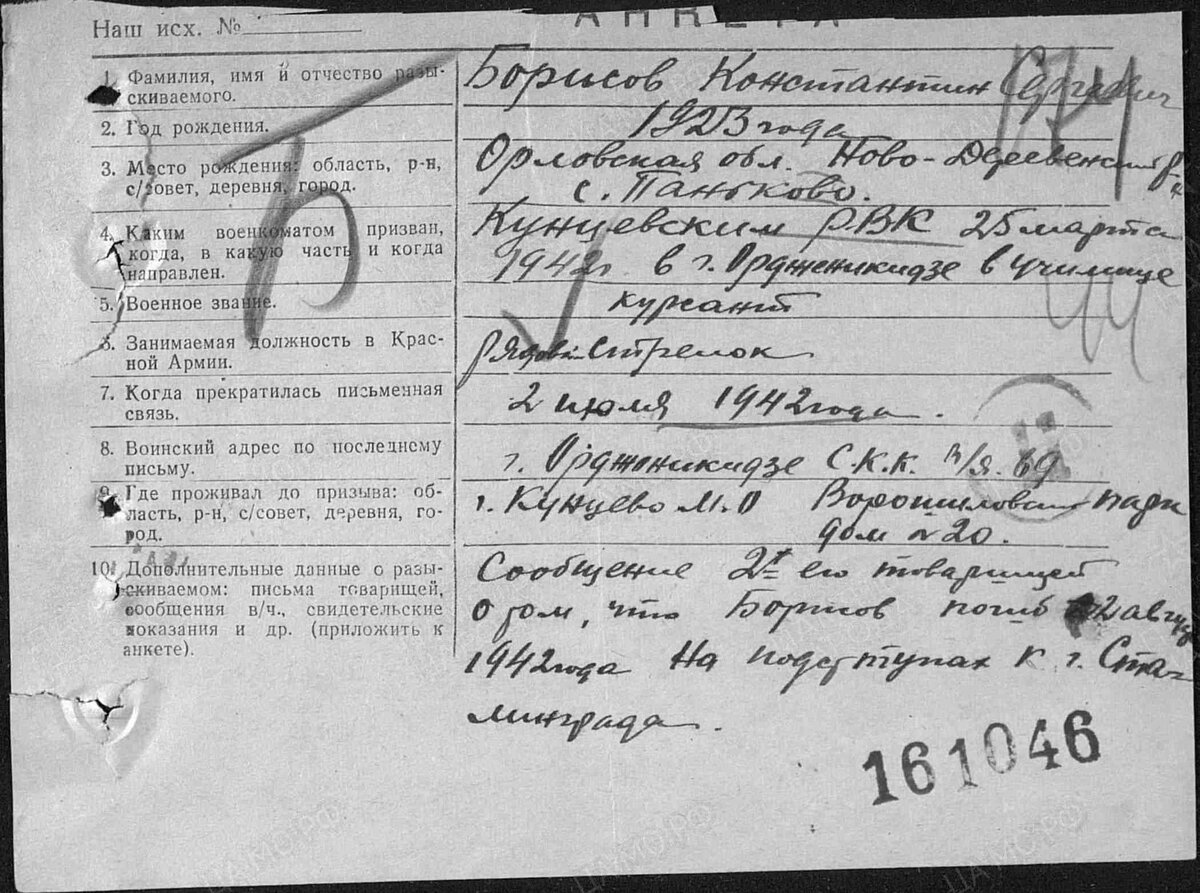 АНКЕТА
Наш исх. №
1. Фамилия, имя и отчество разы-
скиваемого.
Борисов Константин Сергеевич
2. Год рождения.
1923 года
3. Место рождения: область, р-н,
с/совет, деревня, город.
Орловская обл. Ново-Деревенский р-н
с. Паньково.
4. Каким военкоматом призван,
когда, в какую часть и когда
направлен.
Кунцевским РВК 25 марта
1942г. в г. Орджоникидзе в училище
5. Военное звание.
курсант
6. Занимаемая должность в Крас-
ной Армии.
рядов. стрелок
7. Когда прекратилась письменная
связь.
2 июля 1942 года.
8. Воинский адрес по последнему
письму.
г. Орджоникидзе С.К.К. п/я. 69
9. Где проживал до призыва: об-
ласть, р-н, с/совет, деревня, го-
род.
г. Кунцево М.О
дом №20.
10. Дополнительные данные о разы-
скиваемом: письма товарищей,
сообщения в/ч., свидетельские
показания и др. (приложить к
анкете).
Сообщение 2х его товарищей
о том, что Борисов погиб
1942 года на подступах к г. Ста-
линграда.
Б
161046
ЦАМО.РФ